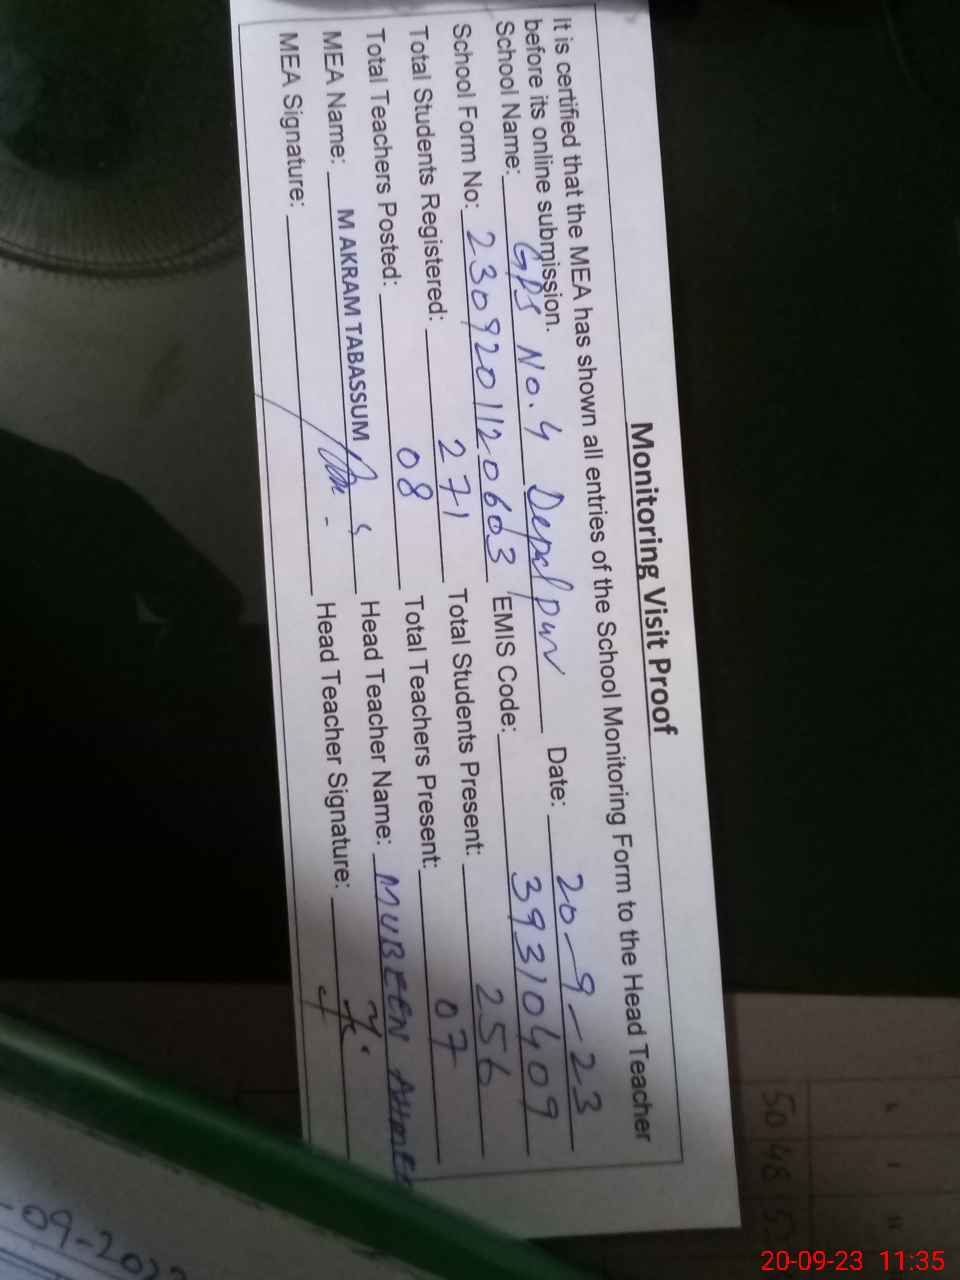 Monitoring Visit Proof
It is certified that the MEA has shown all entries of the School Monitoring Form to the Head Teacher
before its online submission.
School Name: GPS No. 4 Depalpur Date: 20-9-23
School Form No: 2309201120603 EMIS Code: 39310409
Total Students Registered: 271 Total Students Present: 256
Total Teachers Posted: 08 Total Teachers Present: 07
MEA Name: M AKRAM TABASSUM Head Teacher Name: MUBEEN AHMED
MEA Signature: Head Teacher Signature:
50 48
-09-202
20-09-23 11:35